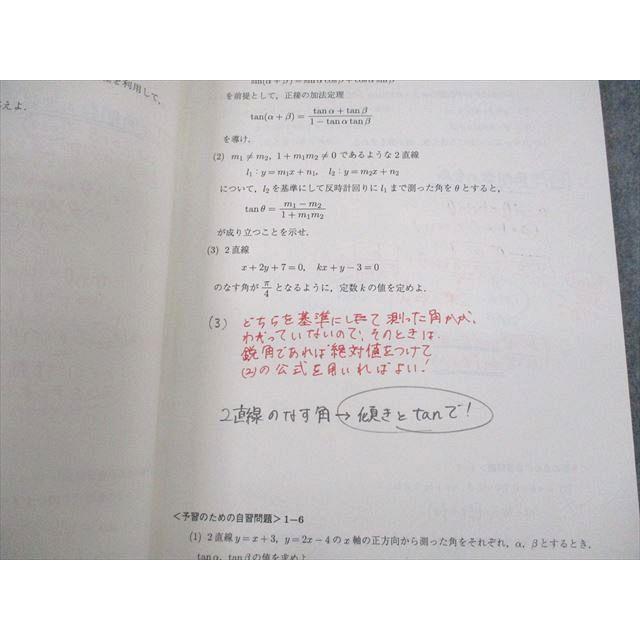 を利用して,
えよ.
sin(α+β)=sin α cos β+cos α sin β
を前提として, 正接の加法定理
tan(α+β)= tan α+tan β / 1−tan α tan β
を導け.
(2) m₁≠m₂, 1+m₁m₂≠0 であるような2直線
l₁:y=m₁x+n₁, l₂:y=m₂x+n₂
について, l₂を基準にして反時計回りにl₁まで測った角をθとすると,
tan θ= m₁−m₂ / 1+m₁m₂
が成り立つことを示せ.
(3) 2直線
x+2y+7=0, kx+y−3=0
のなす角が π/4 となるように, 定数kの値を定めよ.
(3) どちらを基準にして測った角かが、
わかっていないので、そのときは
鋭角であれば絶対値をつけて
(2)の公式を用いればよい!
2直線のなす角→傾きとtanで!
<予習のための自習問題>1−6
(1) 2直線y=x+3, y=2x−4のx軸の正方向から測った角をそれぞれ, α, βとするとき,
tan α, tan βの値を求めよ.